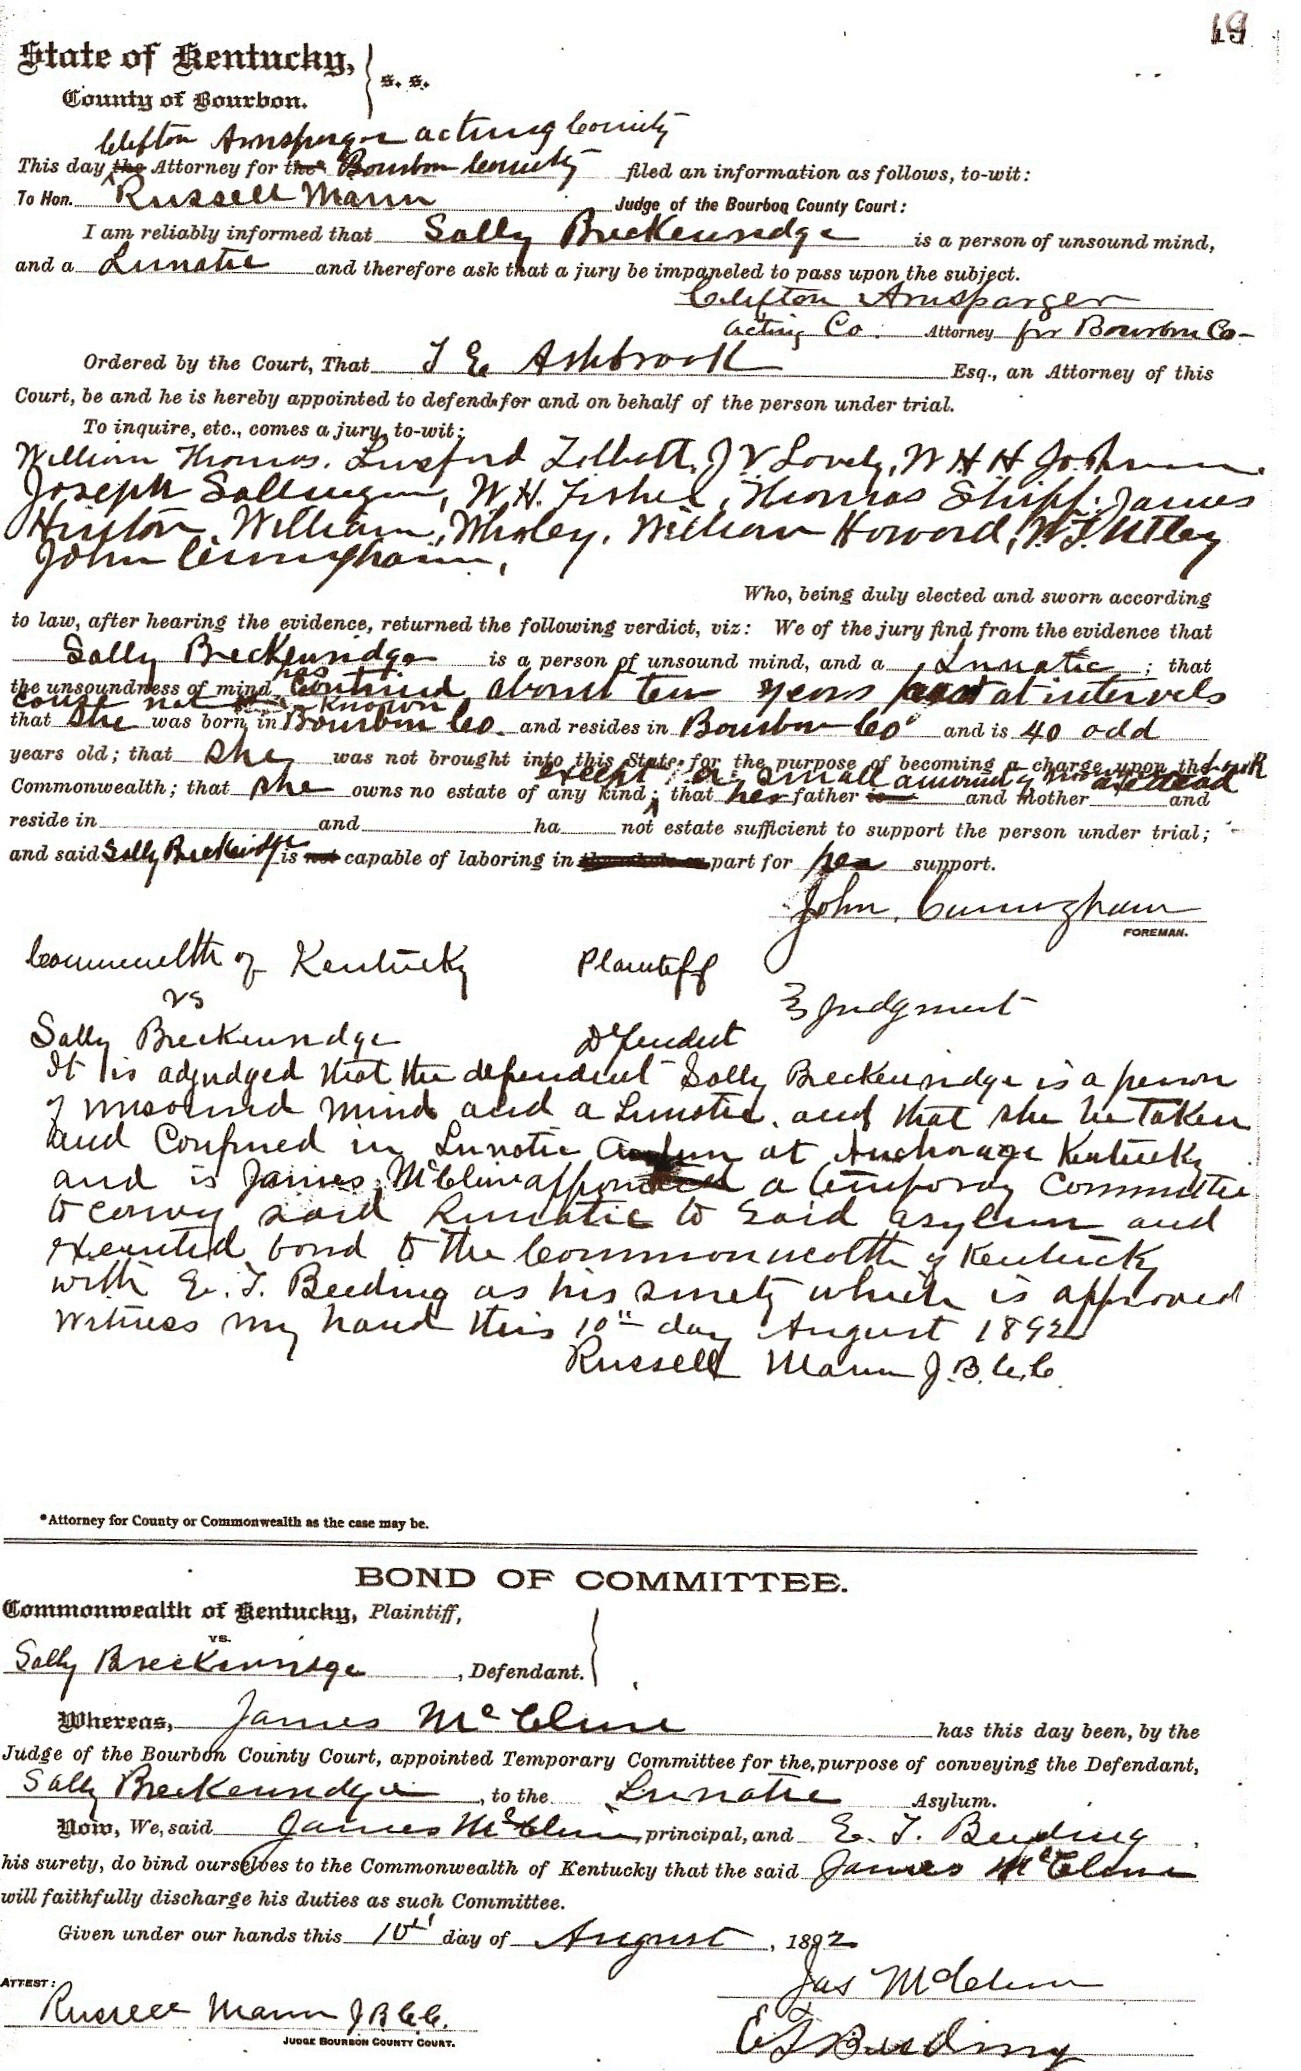 19
State of Kentucky,
County of Bourbon. } s. s.
Clifton Arnsparger acting County
This day the Attorney for the Bourbon County filed an information as follows, to-wit:
To Hon. Russell Mann Judge of the Bourbon County Court:
I am reliably informed that Sally Breckenridge is a person of unsound mind,
and a Lunatic and therefore ask that a jury be impaneled to pass upon the subject.
Clifton Arnsparger
acting Co. Attorney for Bourbon Co-
Ordered by the Court, That T E Ashbrook Esq., an Attorney of this
Court, be and he is hereby appointed to defend for and on behalf of the person under trial.
To inquire, etc., comes a jury, to-wit:
William Thomas, Lunsford Talbott, J V Lovely, W H H Johnson
Joseph W.H. Fisher, Thomas Shipp, James
Hinton, William Whaley, William Howard, Utley
John Cuningham,
Who, being duly elected and sworn according
to law, after hearing the evidence, returned the following verdict, viz: We of the jury find from the evidence that
Sally Breckenridge is a person of unsound mind, and a Lunatic; that
has
the unsoundness of mind continued about ten years past at intervals
cause not known
that she was born in Bourbon Co. and resides in Bourbon Co and is 40 odd
years old; that she was not brought into this State for the purpose of becoming a charge upon the
except a small amount of in bank are dead
Commonwealth; that she owns no estate of any kind; that her father is and mother and
reside in and ha not estate sufficient to support the person under trial;
and said Sally Breckenridge is not capable of laboring in the whole or part for her support.
John Cuningham
FOREMAN.
Commonwealth of Kentucky Plaintiff
vs } Judgment
Sally Breckenridge Defendent
It is adjudged that the defendent Sally Breckenridge is a person
of unsound mind and a Lunatic. and that she be taken
and Confined in Lunatic Asylum at Anchorage Kentucky
and is James McClure appointed a temporary Committee
to convey said Lunatic to said asylum and
executed bond to the Commonwealth of Kentucky
with E. T. Beeding as his surety which is approved
Witness my hand this 10th day August 1892
Russell Mann J.B.C.C.
*Attorney for County or Commonwealth as the case may be.
BOND OF COMMITTEE.
Commonwealth of Kentucky, Plaintiff,
vs.
Sally Breckenridge, Defendant.
Whereas, James McClure has this day been, by the
Judge of the Bourbon County Court, appointed Temporary Committee for the purpose of conveying the Defendant,
Sally Breckenridge, to the Lunatic Asylum.
Now, We, said James McClure principal, and E. T. Beeding,
his surety, do bind ourselves to the Commonwealth of Kentucky that the said James McClure
will faithfully discharge his duties as such Committee.
Given under our hands this 10th day of August, 1892
Jas McClure
ATTEST:
Russell Mann J B C C.
JUDGE BOURBON COUNTY COURT.
E T Beeding